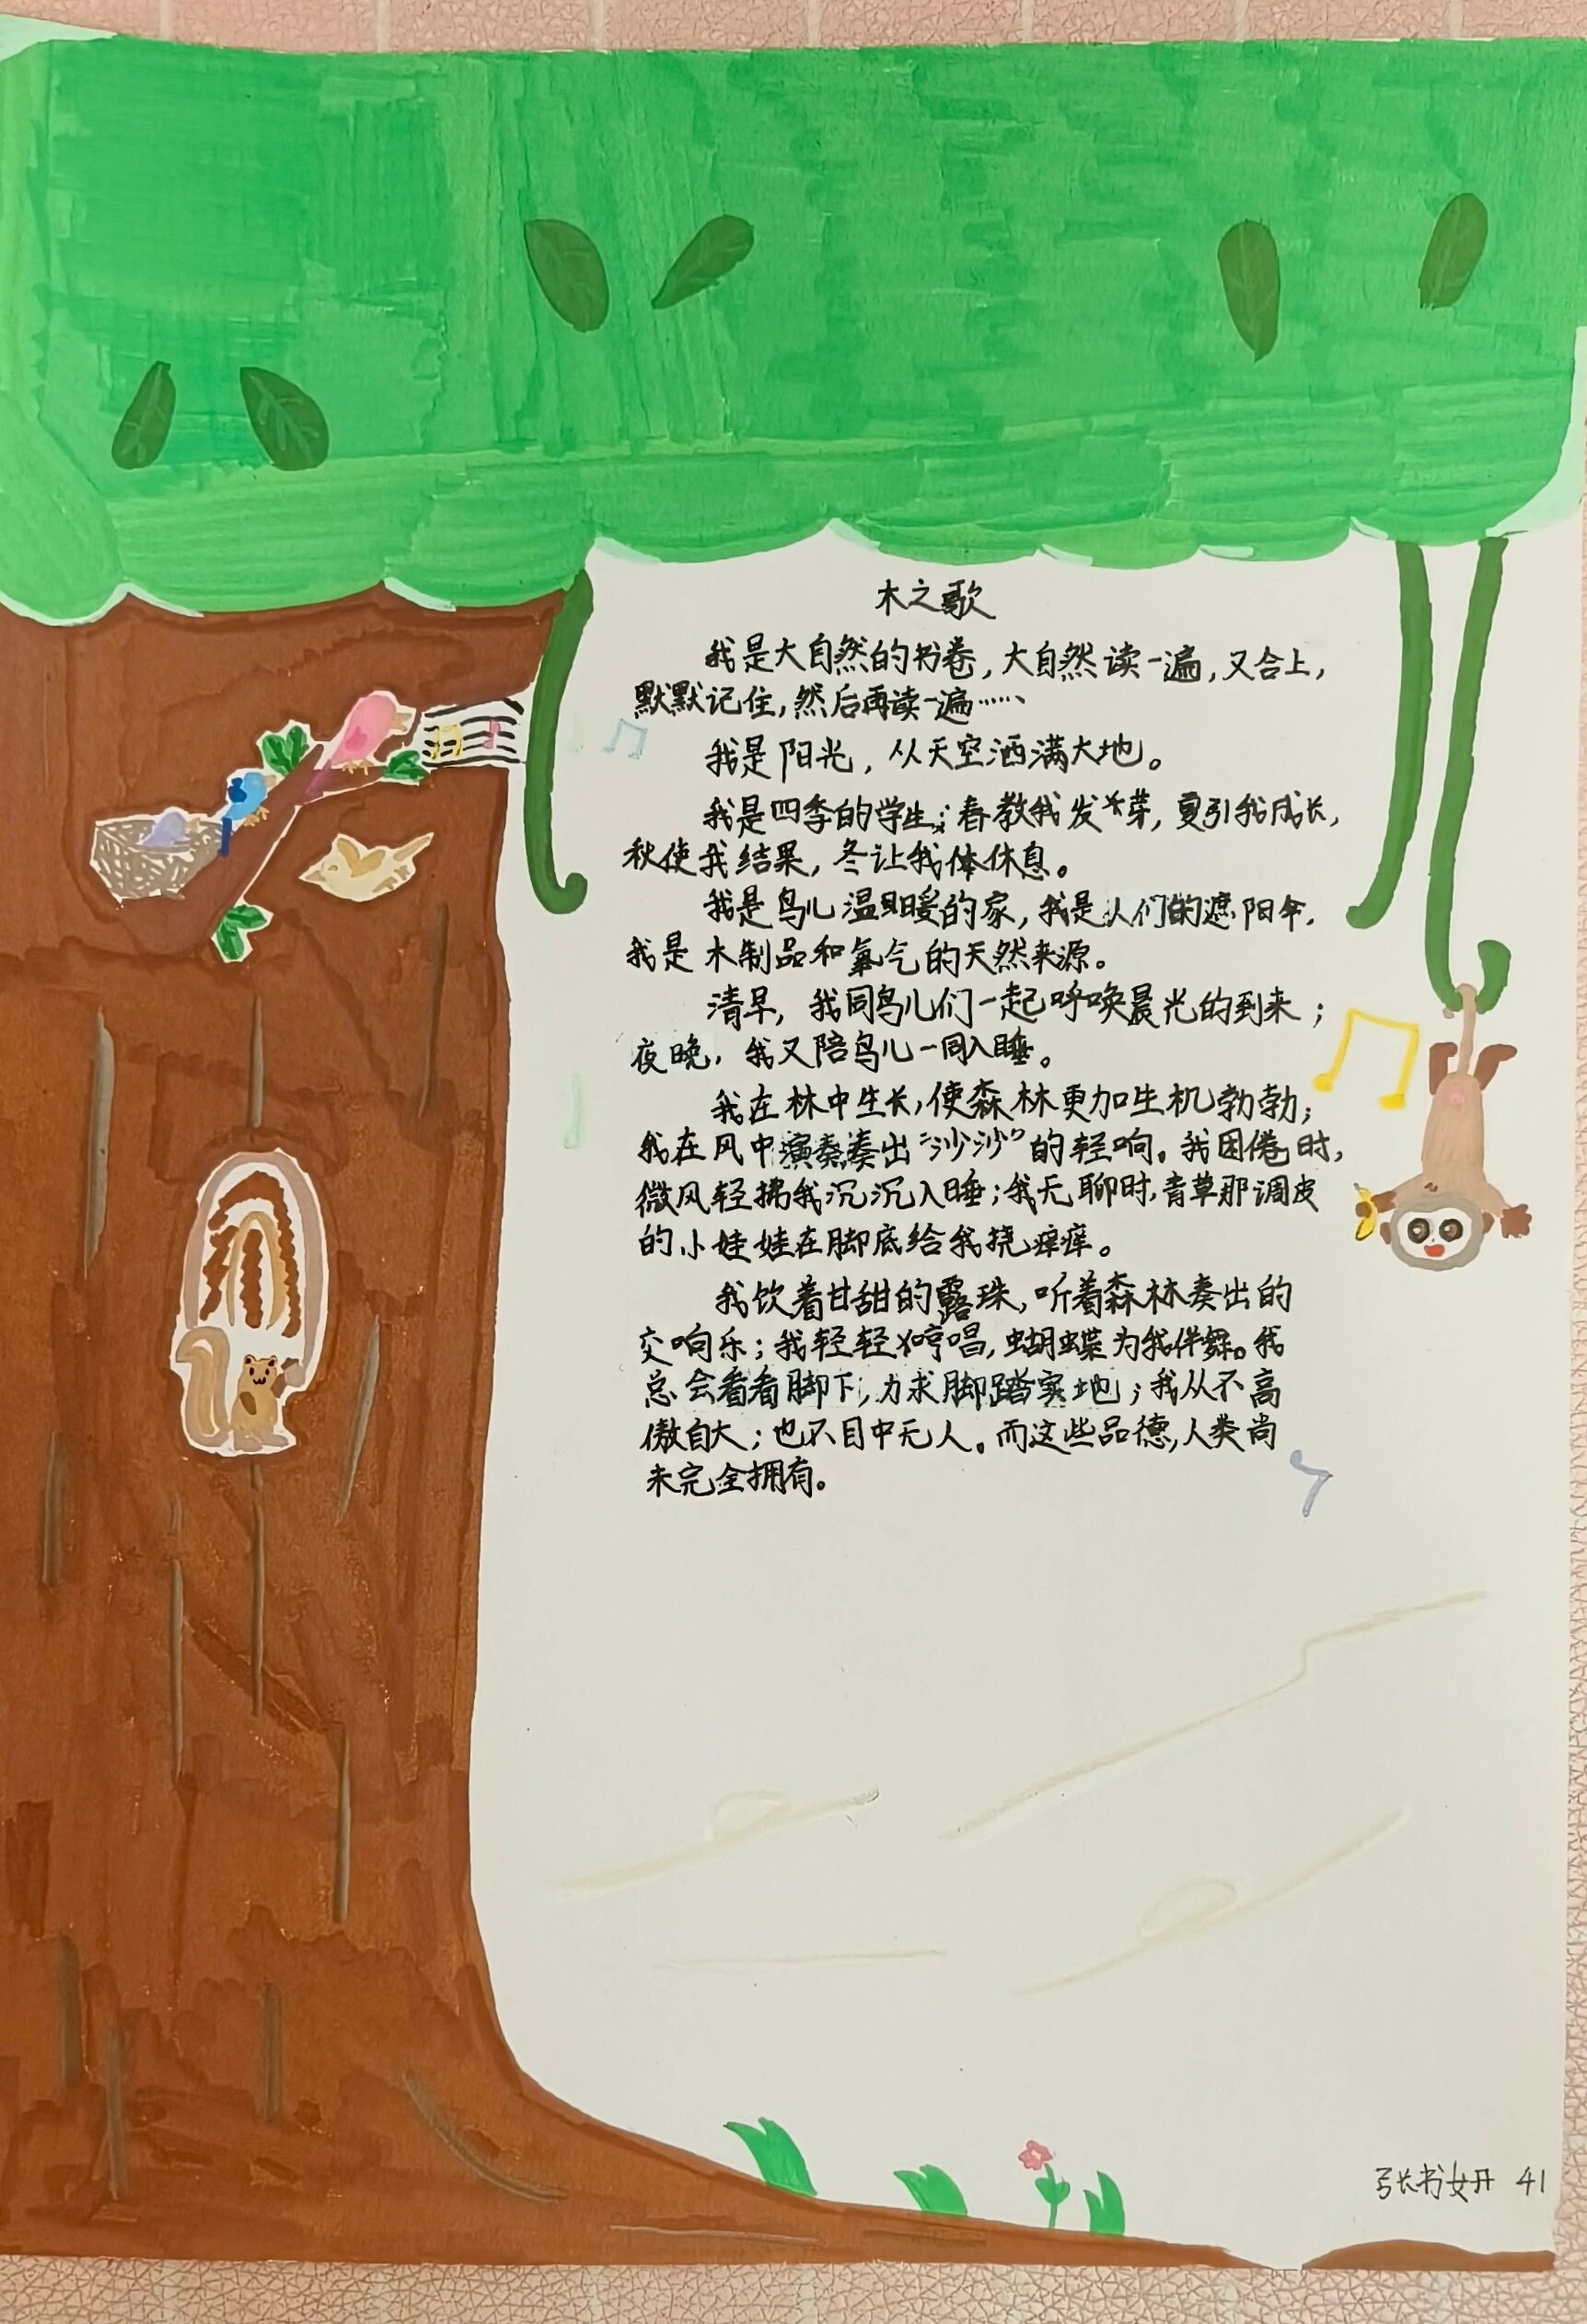 木之歌
我是大自然的书卷,大自然读一遍,又合上,
默默记住,然后再读一遍……
我是阳光,从天空洒满大地。
我是四季的学生;春教我发芽,夏引我成长,
秋使我结果,冬让我休息。
我是鸟儿温暖的家,我是人们的遮阳伞,
我是木制品和氧气的天然来源。
清早,我同鸟儿们一起呼唤晨光的到来;
夜晚,我又陪鸟儿一同入睡。
我在林中生长,使森林更加生机勃勃;
我在风中演奏出“沙沙”的轻响。我困倦时,
微风轻拂我沉沉入睡;我无聊时,青草那调皮
的小娃娃在脚底给我挠痒痒。
我饮着甘甜的露珠,听着森林奏出的
交响乐;我轻轻哼唱,蝴蝶为我伴舞。我
总会看看脚下,力求脚踏实地;我从不高
傲自大;也不目中无人。而这些品德,人类尚
未完全拥有。
张书妍 41